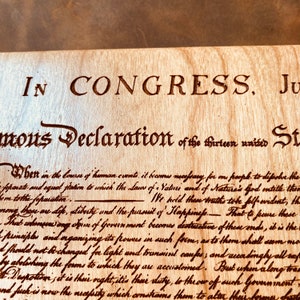 IN CONGRESS, Ju
mous Declaration of the thirteen united St
When in the Course of human events it becomes necessary for one people to dissolve the
separate and equal station to which the Laws of Nature and of Nature's God entitle
them to the separation. We hold these truths to be self-evident, tha
these are Life, Liberty and the pursuit of Happiness. — That to secure these
any Form of Government becomes destructive of these ends, it is the
principles and organizing its powers in such form, as to them shall seem mo
should not be changed for light and transient causes; and accordingly all
by abolishing the forms to which they are accustomed. But when a long
Despotism, it is their right, it is their duty, to throw off such Government
and such is now the necessity which constrains them to alter